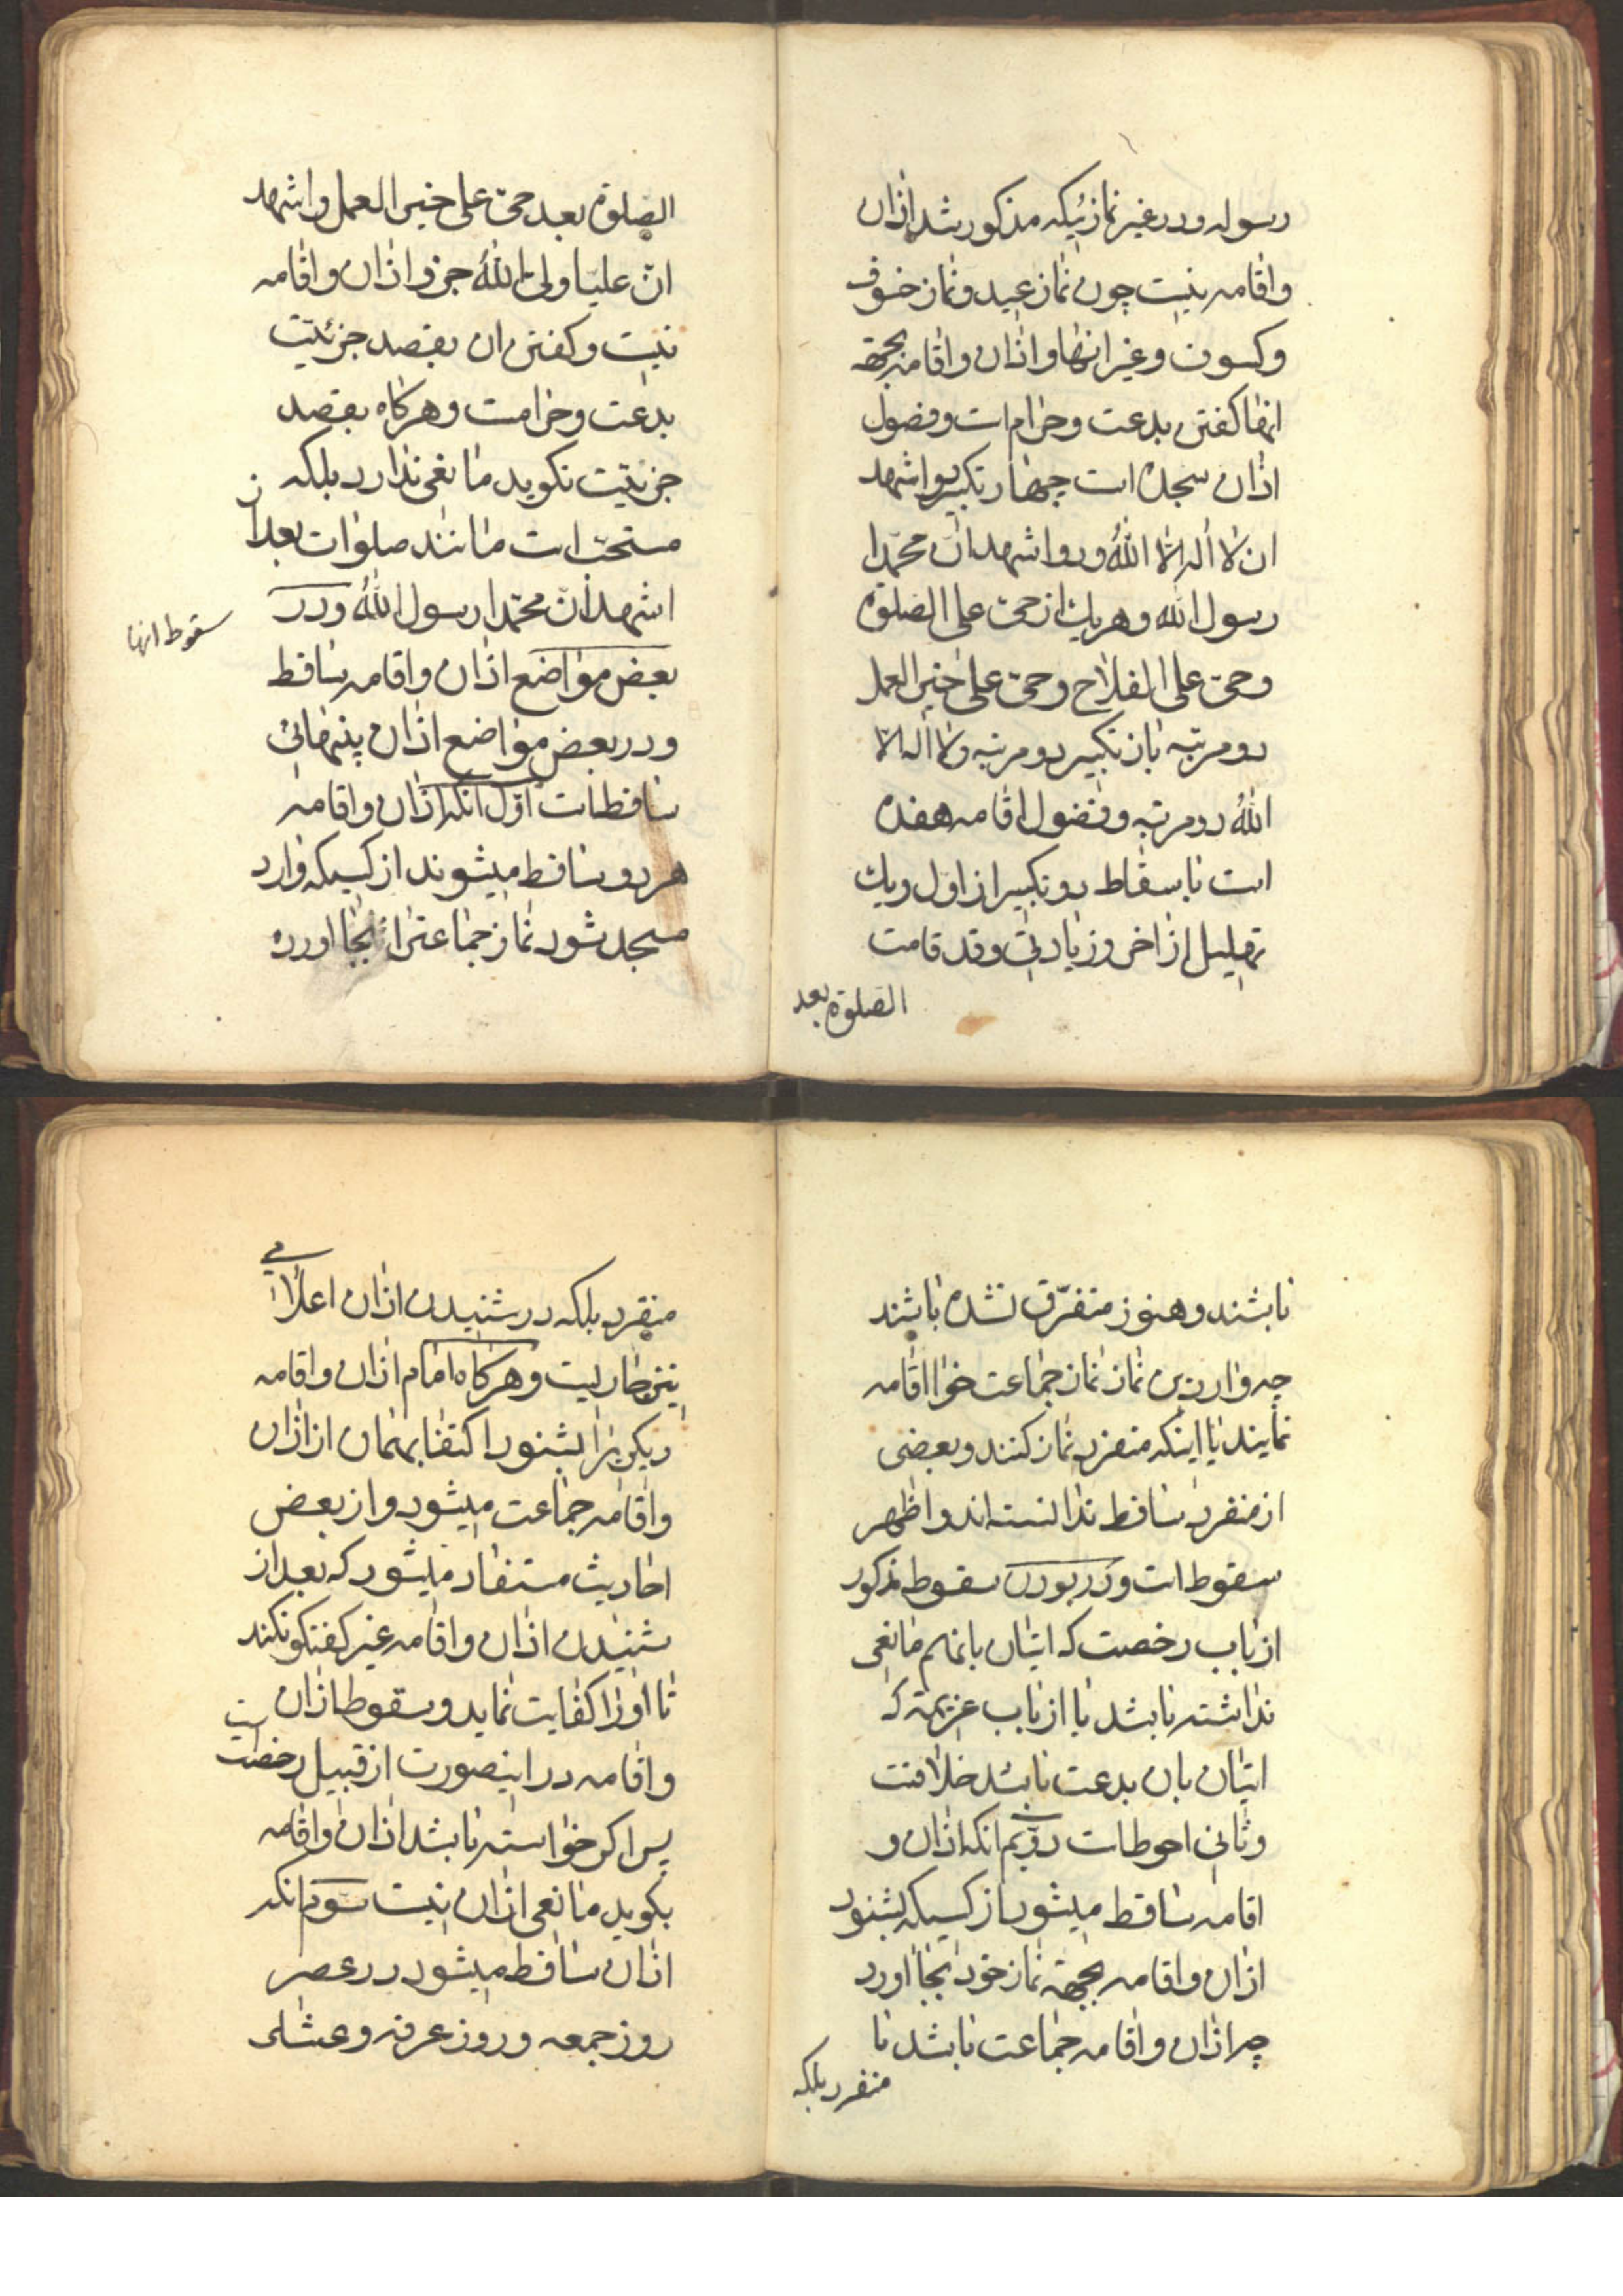 رسوله ودر غیر نمازیکه مذکور شد اذان
واقامه نیست چون نماز عید ونماز خسوف
وکسوف وغیر انها واذان واقامه بجهة
انها کفتن بدعت وحرام است وفصول
اذان هیجده است چهار تکبیر ودو اشهد
ان لا اله الا الله ودو اشهد ان محمدا
رسول الله وهر یك از حی علی الصلوة
وحی علی الفلاح وحی علی خیر العمل
دو مرتبه باز تکبیر دو مرتبه ولا اله الا
الله دو مرتبه وفصول اقامه هفده
است باسقاط دو تکبیر از اول ویك
تهلیل از اخر وزیادتی دو قد قامت
الصلوة بعد
الصلوة بعد حی علی خیر العمل واشهد
ان علیا ولی الله جزو اذان واقامه
نیست وکفتن ان بقصد جزئیت
بدعت وحرامست وهرکاه بقصد
جزئیت نکوید مانعی ندارد بلکه
مستحب است مانند صلوات بعد از
اشهد ان محمدا رسول الله ودر
سقوط انها
بعض مواضع اذان واقامه ساقط
ودر بعض مواضع اذان بتنهائی
ساقط است اول انکه اذان واقامه
هر دو ساقط میشوند از کسیکه وارد
مسجد شود نماز جماعتی را بجا اورده
باشند وهنوز متفرق نشده باشند
چه واردین نماز نماز جماعت خوا اقامه
نمایند یا اینکه منفرد نماز کنند وبعضی
از منفرد ساقط ندانسته اند واظهر
سقوط است ودر بودن سقوط مذکور
از باب رخصت که اتیان بانهم مانعی
نداشته باشد یا از باب عزیمة که
اتیان بان بدعت باشد خلافست
وثانی احوط است دویم انکه اذان و
اقامه ساقط میشود از کسیکه بشنود
اذان واقامه بجهة نماز خود بجا اورد
چه اذان واقامه جماعت باشد یا
منفرد بلکه
منفرد بلکه در شنیدن اذان اعلامی
نیز جاریست وهرکاه امام اذان واقامه
دیکریرا بشنود اکتفا بهمان از اذان
واقامه جماعت میشود واز بعض
احادیث مستفاد میشود که بعد از
شنیدن اذان واقامه غیر کفتکو نکند
تا اورا کفایت نماید وسقوط اذان
واقامه در اینصورت از قبیل رخصت است
پس اکر خواسته باشد اذان واقامه
بکوید مانعی از ان نیست سوم انکه
اذان ساقط میشود در عصر
روز جمعه وروز عرفه وعشای